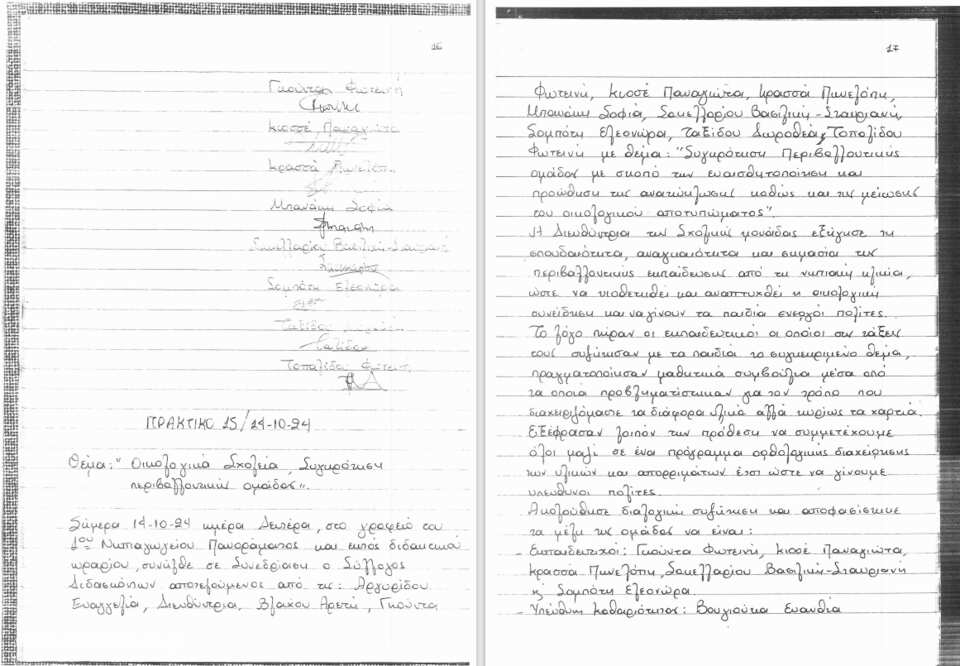 16
Γκούντα Φωτεινή
Κιοσσέ Παναγιώτα
Κρασσά Πηνελόπη
Μπανάκη Σοφία
Σακελλαρίου Βασιλική-Σταυριανή
Σαμπότη Ελεονώρα
Ταξίδου
Ταξίδου
Τοπαλίδα Φωτεινή
ΠΡΑΚΤΙΚΟ 15/14-10-24
Θέμα: "Οικολογικά Σχολεία, Συγκρότηση
περιβαλλοντικής ομάδος".
Σήμερα 14-10-24 ημέρα Δευτέρα, στο γραφείο του
1ου Νηπιαγωγείου Πανοράματος και εκτός διδακτικού
ωραρίου, συνήλθε σε Συνεδρίαση ο Σύλλογος
Διδασκόντων αποτελούμενος από τις: Αργυρίδου
Ευαγγελία, Διευθύντρια, Βλάχου Αρετή, Γκούντα
17
Φωτεινή, Κιοσέ Παναγιώτα, Κρασσά Πηνελόπη,
Μπανάκη Σοφία, Σακελλαρίου Βασιλική-Σταυριανή,
Σαμπότη Ελεονώρα, Ταξίδου Δωροθέα, Τοπαλίδου
Φωτεινή με θέμα: "Συγκρότηση Περιβαλλοντικής
ομάδος με σκοπό την ευαισθητοποίηση και
προώθηση της ανακύκλωσης καθώς και της μείωσης
του οικολογικού αποτυπώματος".
Η Διευθύντρια της Σχολικής μονάδας εξήγησε τη
σπουδαιότητα, αναγκαιότητα και σημασία της
περιβαλλοντικής εκπαίδευσης από τη νηπιακή ηλικία,
ώστε να υιοθετηθεί και αναπτυχθεί η οικολογική
συνείδηση και να γίνουν τα παιδιά ενεργοί πολίτες.
Το λόγο πήραν οι εκπαιδευτικοί οι οποίοι στις τάξεις
τους συζήτησαν με τα παιδιά το συγκεκριμένο θέμα,
πραγματοποίησαν μαθητικά συμβούλια μέσα από
τα οποία προβληματίστηκαν για τον τρόπο που
διαχειριζόμαστε τα διάφορα υλικά αλλά κυρίως τα χαρτιά.
Εξέφρασαν λοιπόν την πρόθεση να συμμετέχουμε
όλοι μαζί σε ένα πρόγραμμα ορθολογικής διαχείρησης
των υλικών και απορριμάτων έτσι ώστε να γίνουμε
υπεύθυνοι πολίτες.
Ακολούθησε διαλογική συζήτηση και αποφασίστηκε
τα μέλη της ομάδος να είναι:
- Εκπαιδευτικοί: Γκούντα Φωτεινή, Κιοσέ Παναγιώτα,
Κρασσά Πηνελόπη, Σακελλαρίου Βασιλική-Σταυριανή
κ' Σαμπότη Ελεονώρα
- Υπεύθυνη Καθαριότητος: Βουγιούκα Ευανθία